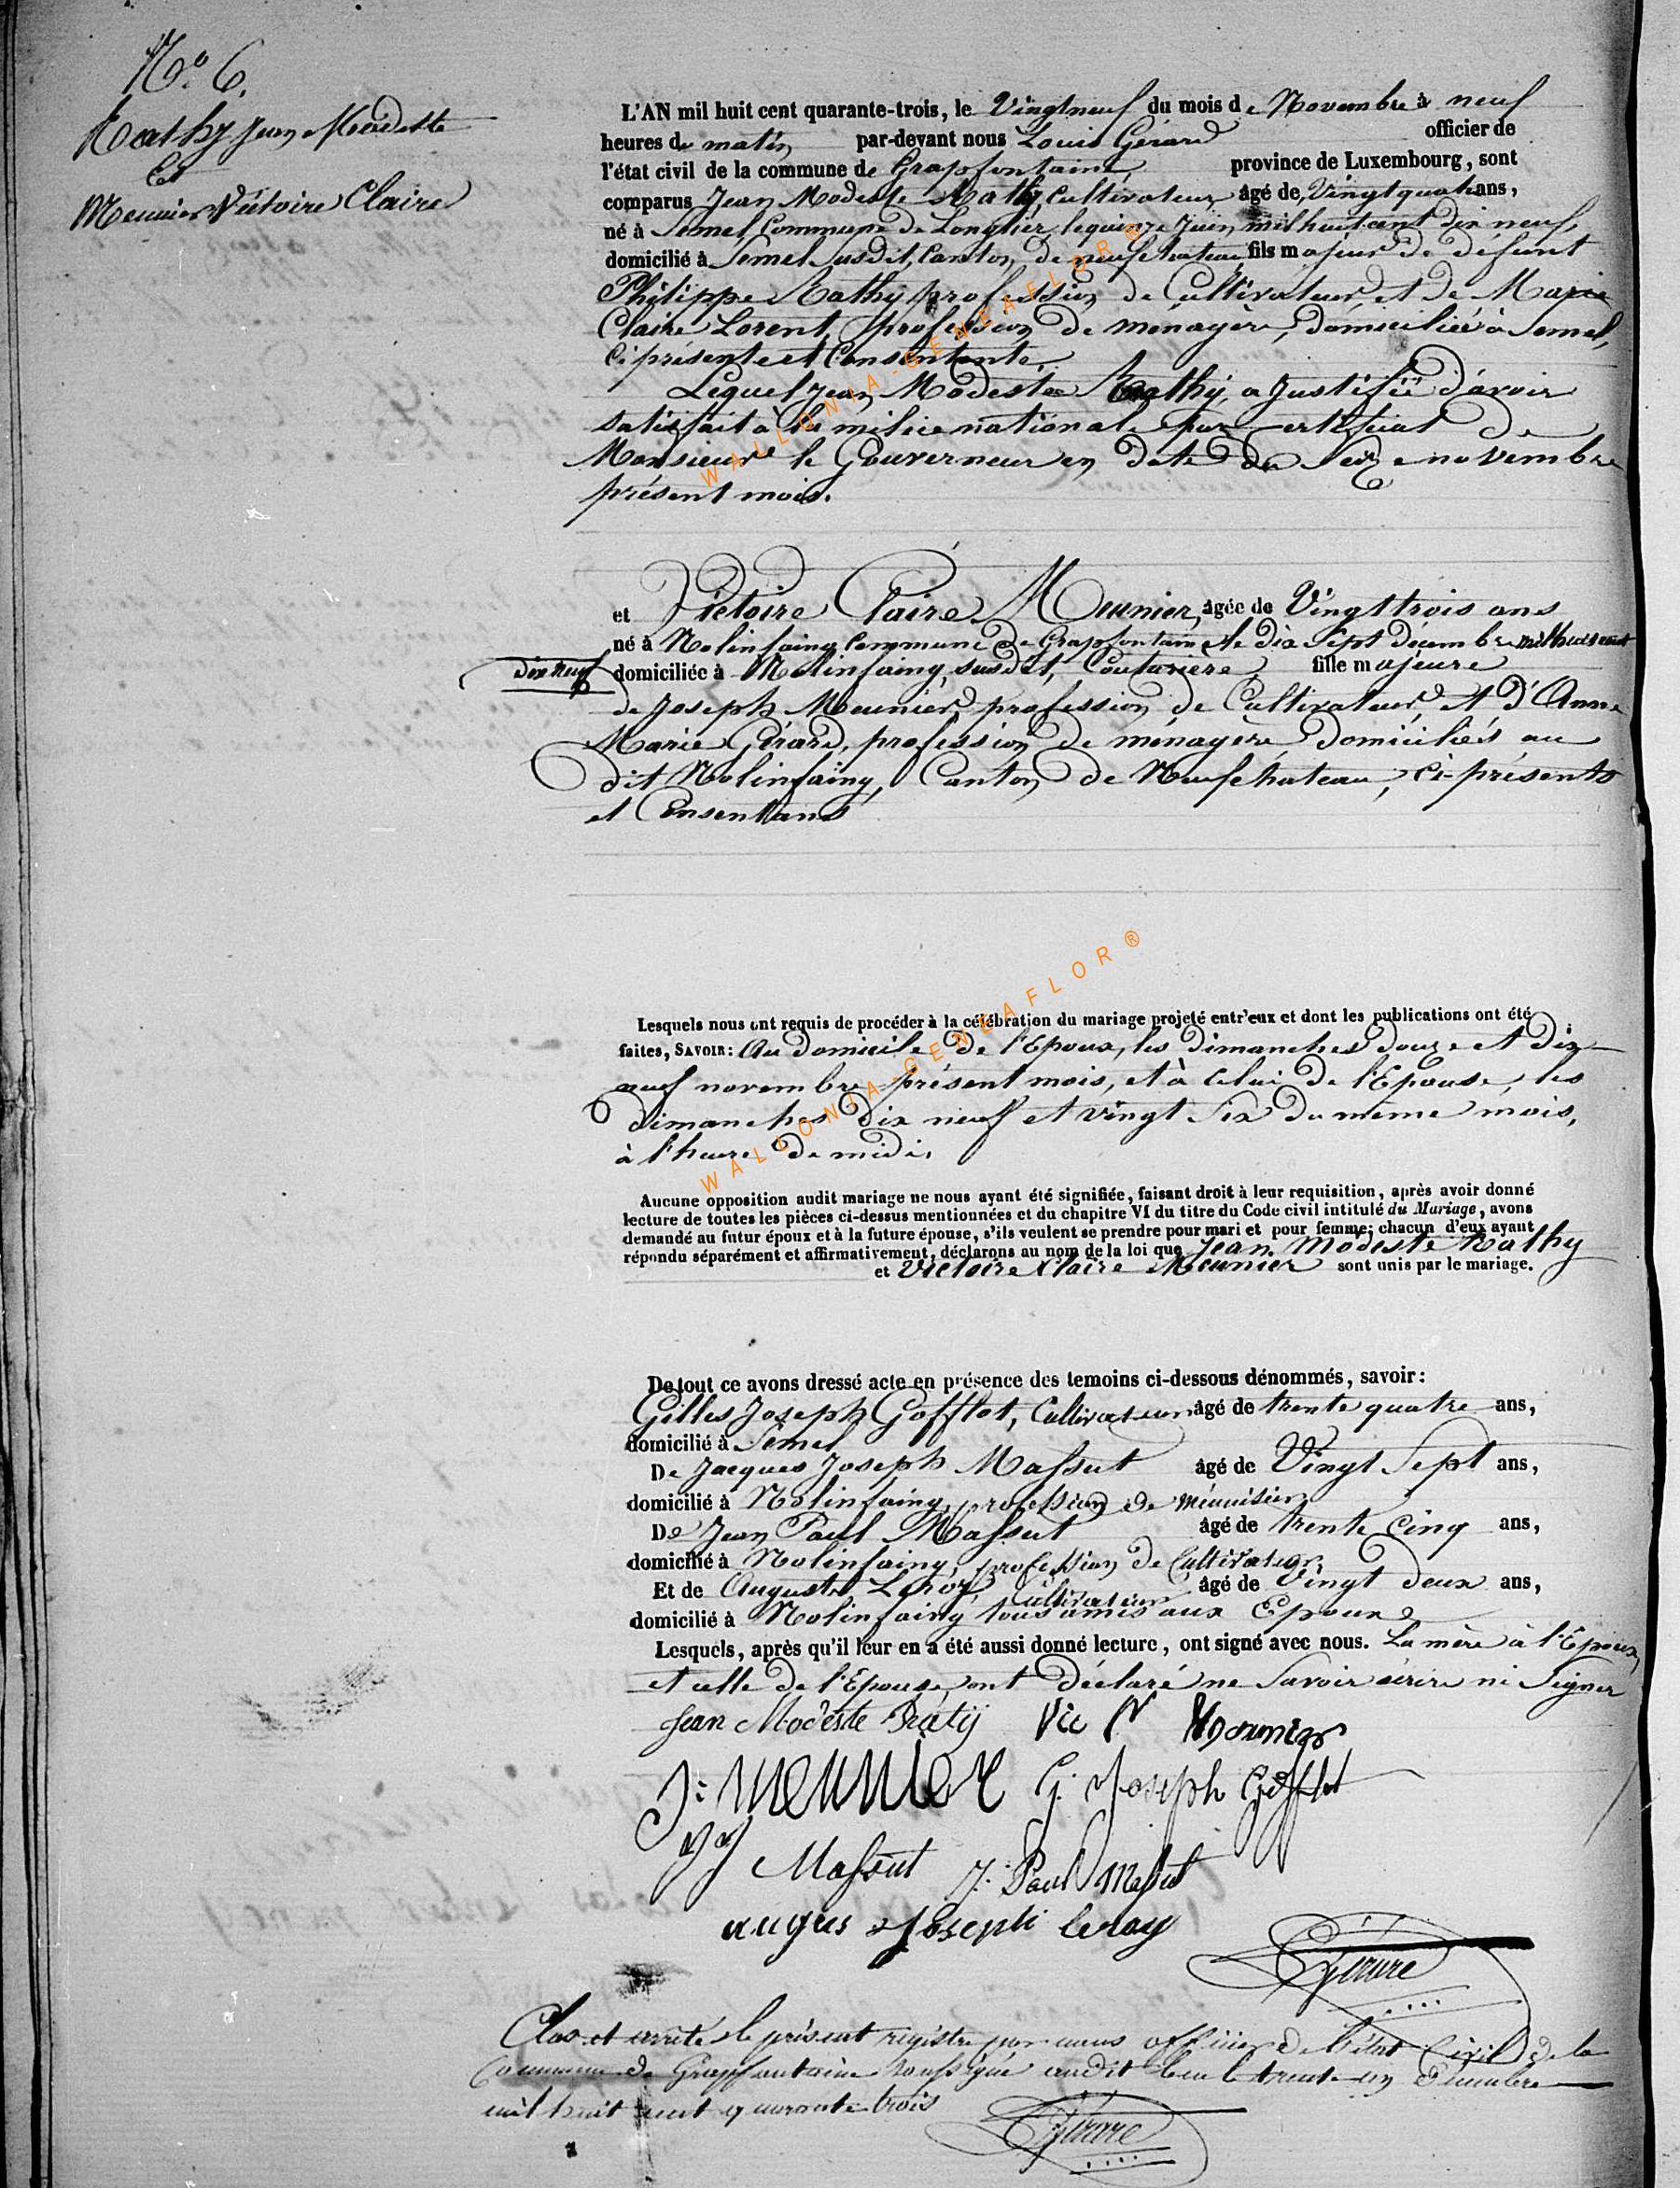 N.º 6.
Rathy Jean Modeste
Et
Meunier Victoire Claire
L'AN mil huit cent quarante-trois, le Vingtneuf du mois de Novembre à neuf
heures du matin par-devant nous Louis Gérard officier de
l'état civil de la commune de Grapfontaine, province de Luxembourg, sont
comparus Jean Modeste Rathy, Cultivateur, âgé de Vingt quatre ans,
né à Semel, Commune de Longlier, le quinze Juin mil huit cent dix neuf,
domicilié à Semel susdit, Canton de neufchateau, fils majeur de défunt
Philippe Rathy, profession de Cultivateur, et de Marie
Claire Lorent, profession de ménagère, domiciliée à Semel,
Ci présente et Consentante,
Lequel Jean Modeste Rathy, a Justifié d'avoir
satisfait à la milice nationale par certificat de
Monsieur le Gouverneur en date du seize novembre
présent mois.
et Victoire Claire Meunier, âgée de Vingt trois ans
né à Nolinfaing Commune de Grapfontaine, le dix sept décembre mil huit cent
dix neuf domiciliée à Molinfaing, susdit, Couturière, fille majeure
de Joseph Meunier, profession de Cultivateur, et D'Anne
Marie Gérard, profession de ménagère, domiciliés au
dit Nolinfaing, Canton de Neufchateau, Ci-présents
et Consentans
Lesquels nous ont requis de procéder à la célébration du mariage projeté entr'eux et dont les publications ont été
faites, SAVOIR: Au domicile de l'Epoux, les dimanches douze et dix
neuf novembre présent mois, et à celui de l'Epouse, les
dimanches dix neuf et vingt six du meme mois,
à l'heure de midi.
Aucune opposition audit mariage ne nous ayant été signifiée, faisant droit à leur requisition, après avoir donné
lecture de toutes les pièces ci-dessus mentionnées et du chapitre VI du titre du Code civil intitulé du Mariage, avons
demandé au futur époux et à la future épouse, s'ils veulent se prendre pour mari et pour femme; chacun d'eux ayant
répondu séparément et affirmativement, déclarons au nom de la loi que Jean Modeste Rathy
et Victoire Claire Meunier sont unis par le mariage.
De tout ce avons dressé acte en présence des temoins ci-dessous dénommés, savoir:
Gilles Joseph Gofflot, Cultivateur âgé de trente quatre ans,
domicilié à Semel
De Jacques Joseph Massut âgé de Vingt Sept ans,
domicilié à Nolinfaing, profession de menuisier
De Jean Paul Massut âgé de trente Cinq ans,
domicilié à Nolinfaing, profession de Cultivateur,
Et de Auguste Leroy, Cultivateur âgé de Vingt deux ans,
domicilié à Nolinfaing tous amis aux Epoux
Lesquels, après qu'il leur en a été aussi donné lecture, ont signé avec nous. La mère à l'Epoux,
et celle de l'Epouse, ont déclaré ne Savoir écrire ni Signer
Jean Modeste Raty Vic Meunier
J: meunier G. Joseph Gofflot
JJ Massut J. Paul Massut
augus Joseph leroy
Gérard
Clos et arrêté le présent registre par nous officier de l'état Civil de la
Commune de Grapfontaine soussigné audit lieu le trente un Décembre
mil huit cent quarante trois
Gérard
WALLONIA-GENEAFLOR®
WALLONIA-GENEAFLOR®